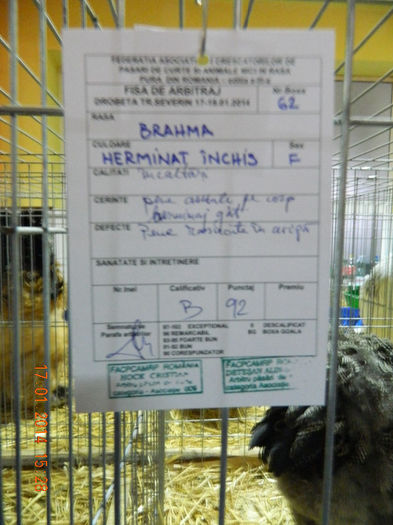 FEDERATIA ASOCIATIILOR CRESCATORILOR DE
PASARI DE CURTE SI ANIMALE MICI DE RASA
PURA DIN ROMANIA - editia a III-a
FISA DE ARBITRAJ
DROBETA TR.SEVERIN 17-19.01.2014
Nr Boxa
62
RASA
BRAHMA
CULOARE
Sex
HERMINAT ÎNCHIS
F
CALITATI încălțări
CERINTE pene așezate pe corp
herminaj gât
DEFECTE Pene în aripă
SANATATE SI INTRETINERE
Nr.Inel
Calificativ
Punctaj
Premiu
B
92
Semnatura
Parafa arbitrilor
97-100 EXCEPTIONAL
96 REMARCABIL
93-95 FOARTE BUN
91-92 BUN
90 CORESPUNZATOR
0 DESCALIFICAT
BG BOXA GOALA
FACPCAMRP ROMÂNIA
CRISTIAN
Arbitru păsări de
categoria - Asociație
FACPCAMRP
DETEȘAN
Arbitru păsări de
categoria Asociație
17.01.2014 15:23